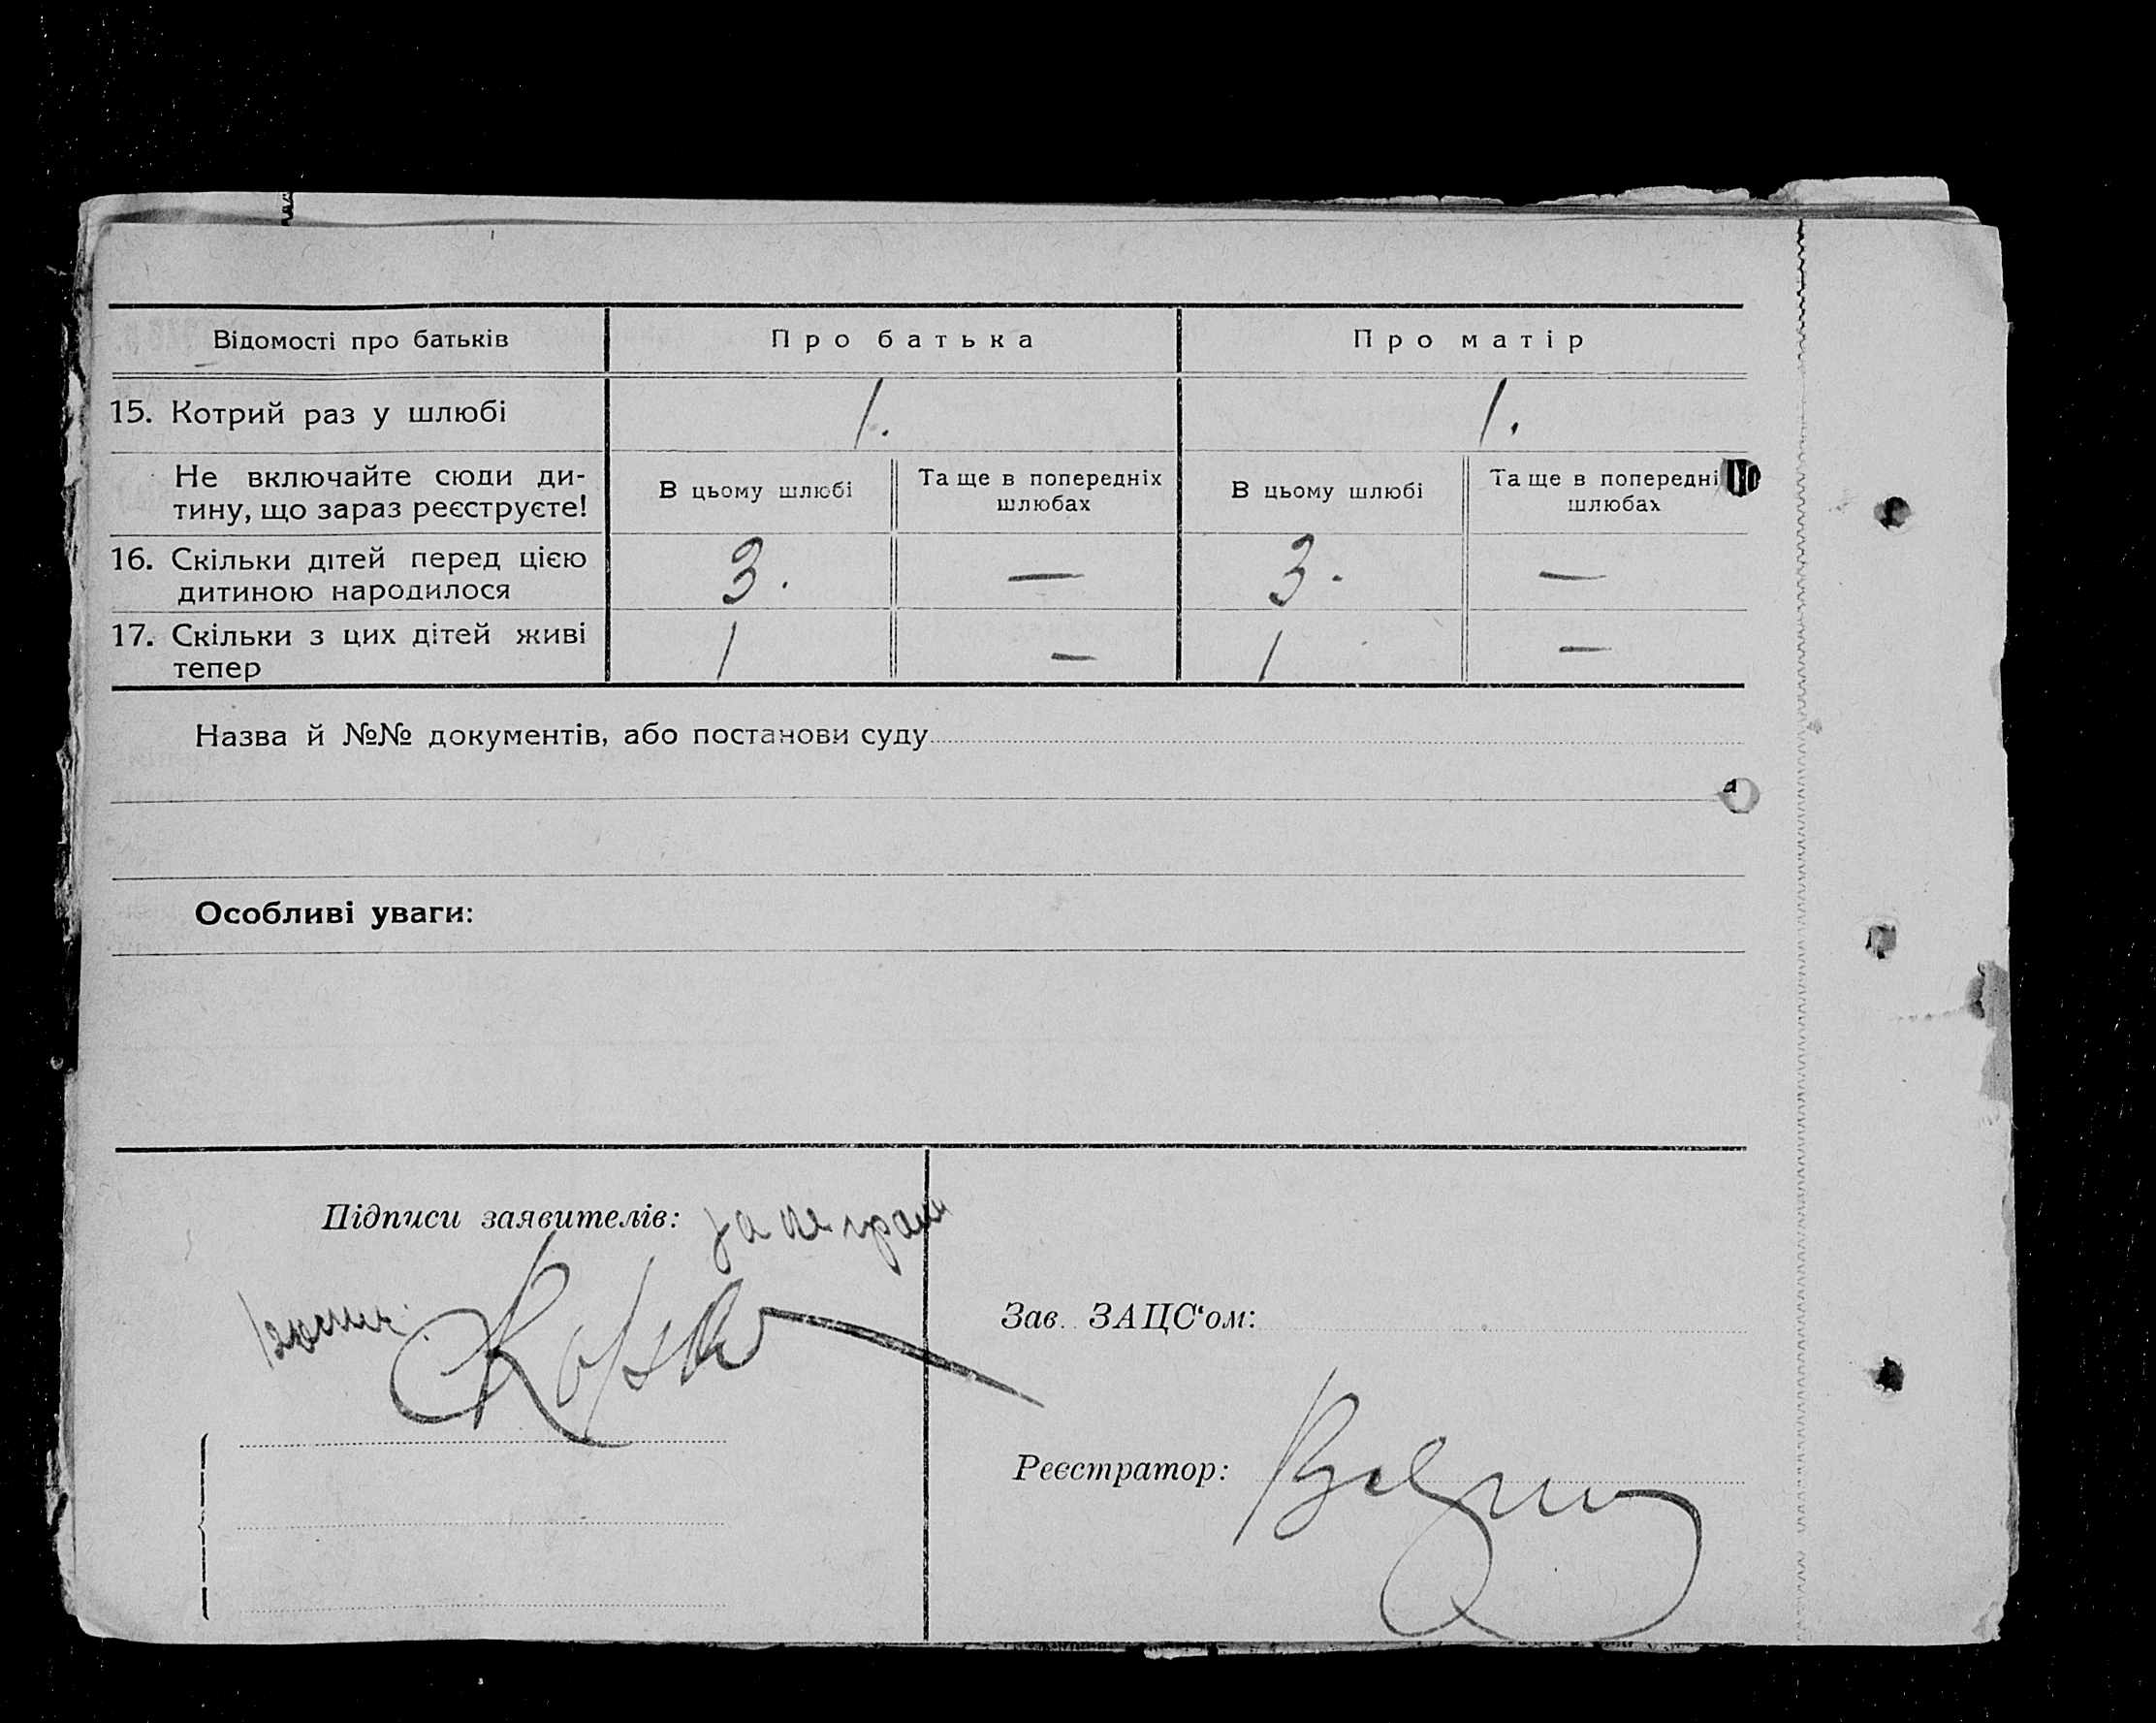 Відомості про батьків
Про батька
Про матір
15. Котрий раз у шлюбі
1.
1.
Не включайте сюди ди-
тину, що зараз реєструєте!
В цьому шлюбі
Та ще в попередніх
шлюбах
В цьому шлюбі
Та ще в попередні
шлюбах
16. Скільки дітей перед цією
дитиною народилося
3.
—
3.
—
17. Скільки з цих дітей живі
тепер
1
—
1
—
Назва й №№ документів, або постанови суду
Особливі уваги:
Підписи заявителів: за
Зав. ЗАЦС‘ом:
Реєстратор: